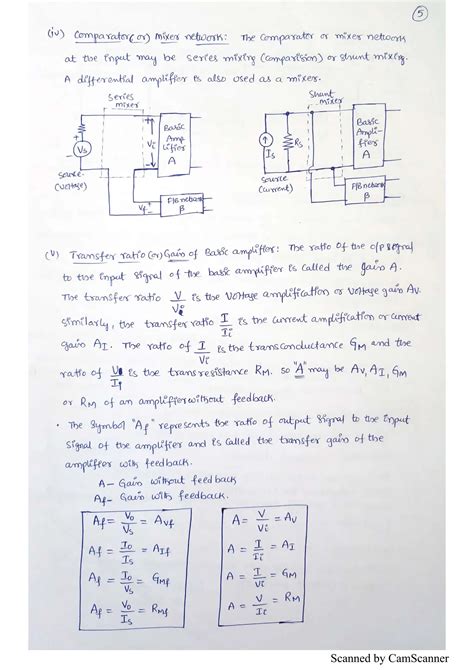 5
(iv) Comparator (or) mixer network: The comparator or mixer network
at the input may be series mixing (comparision) or shunt mixing.
A differential amplifier is also used as a mixer.
series
mixer
Vs
source
(voltage)
Vi
Basic
Ampl-
ifier
A
Vf
F/B network
β
Shunt
mixer
Is
Rs
source
(current)
Basic
Ampli-
fier
A
F/B network
β
(v) Transfer ratio (or) Gain of Basic amplifier: The ratio of the o/p signal
to the input signal of the basic amplifier is called the gain A.
The transfer ratio V/Vi is the voltage amplification or voltage gain Av.
similarly, the transfer ratio I/Ii is the current amplification or current
gain AI. The ratio of I/Vi is the transconductance GM and the
ratio of V/Ii is the transresistance RM. so "A" may be Av, AI, GM
or RM of an amplifier without feedback.
• The symbol "Af" represents the ratio of output signal to the input
signal of the amplifier and is called the transfer gain of the
amplifier with feedback.
A - Gain without feedback
Af - Gain with feedback.
Af = Vo/Vs = Avf
Af = Io/Is = AIf
Af = Io/Vs = GMf
Af = Vo/Is = RMf
A = V/Vi = Av
A = I/Ii = AI
A = I/Vi = GM
A = V/Ii = RM
Scanned by CamScanner